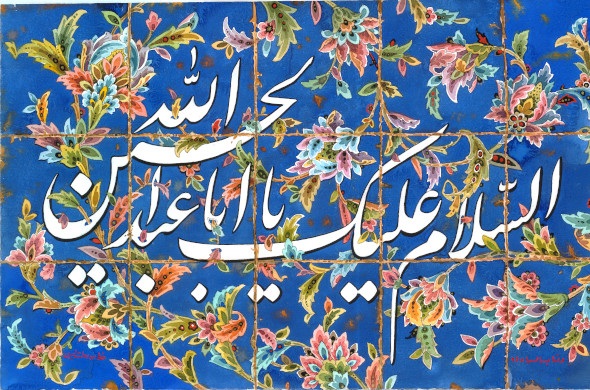 السّلام علیک یا اباعبدالله الحسین